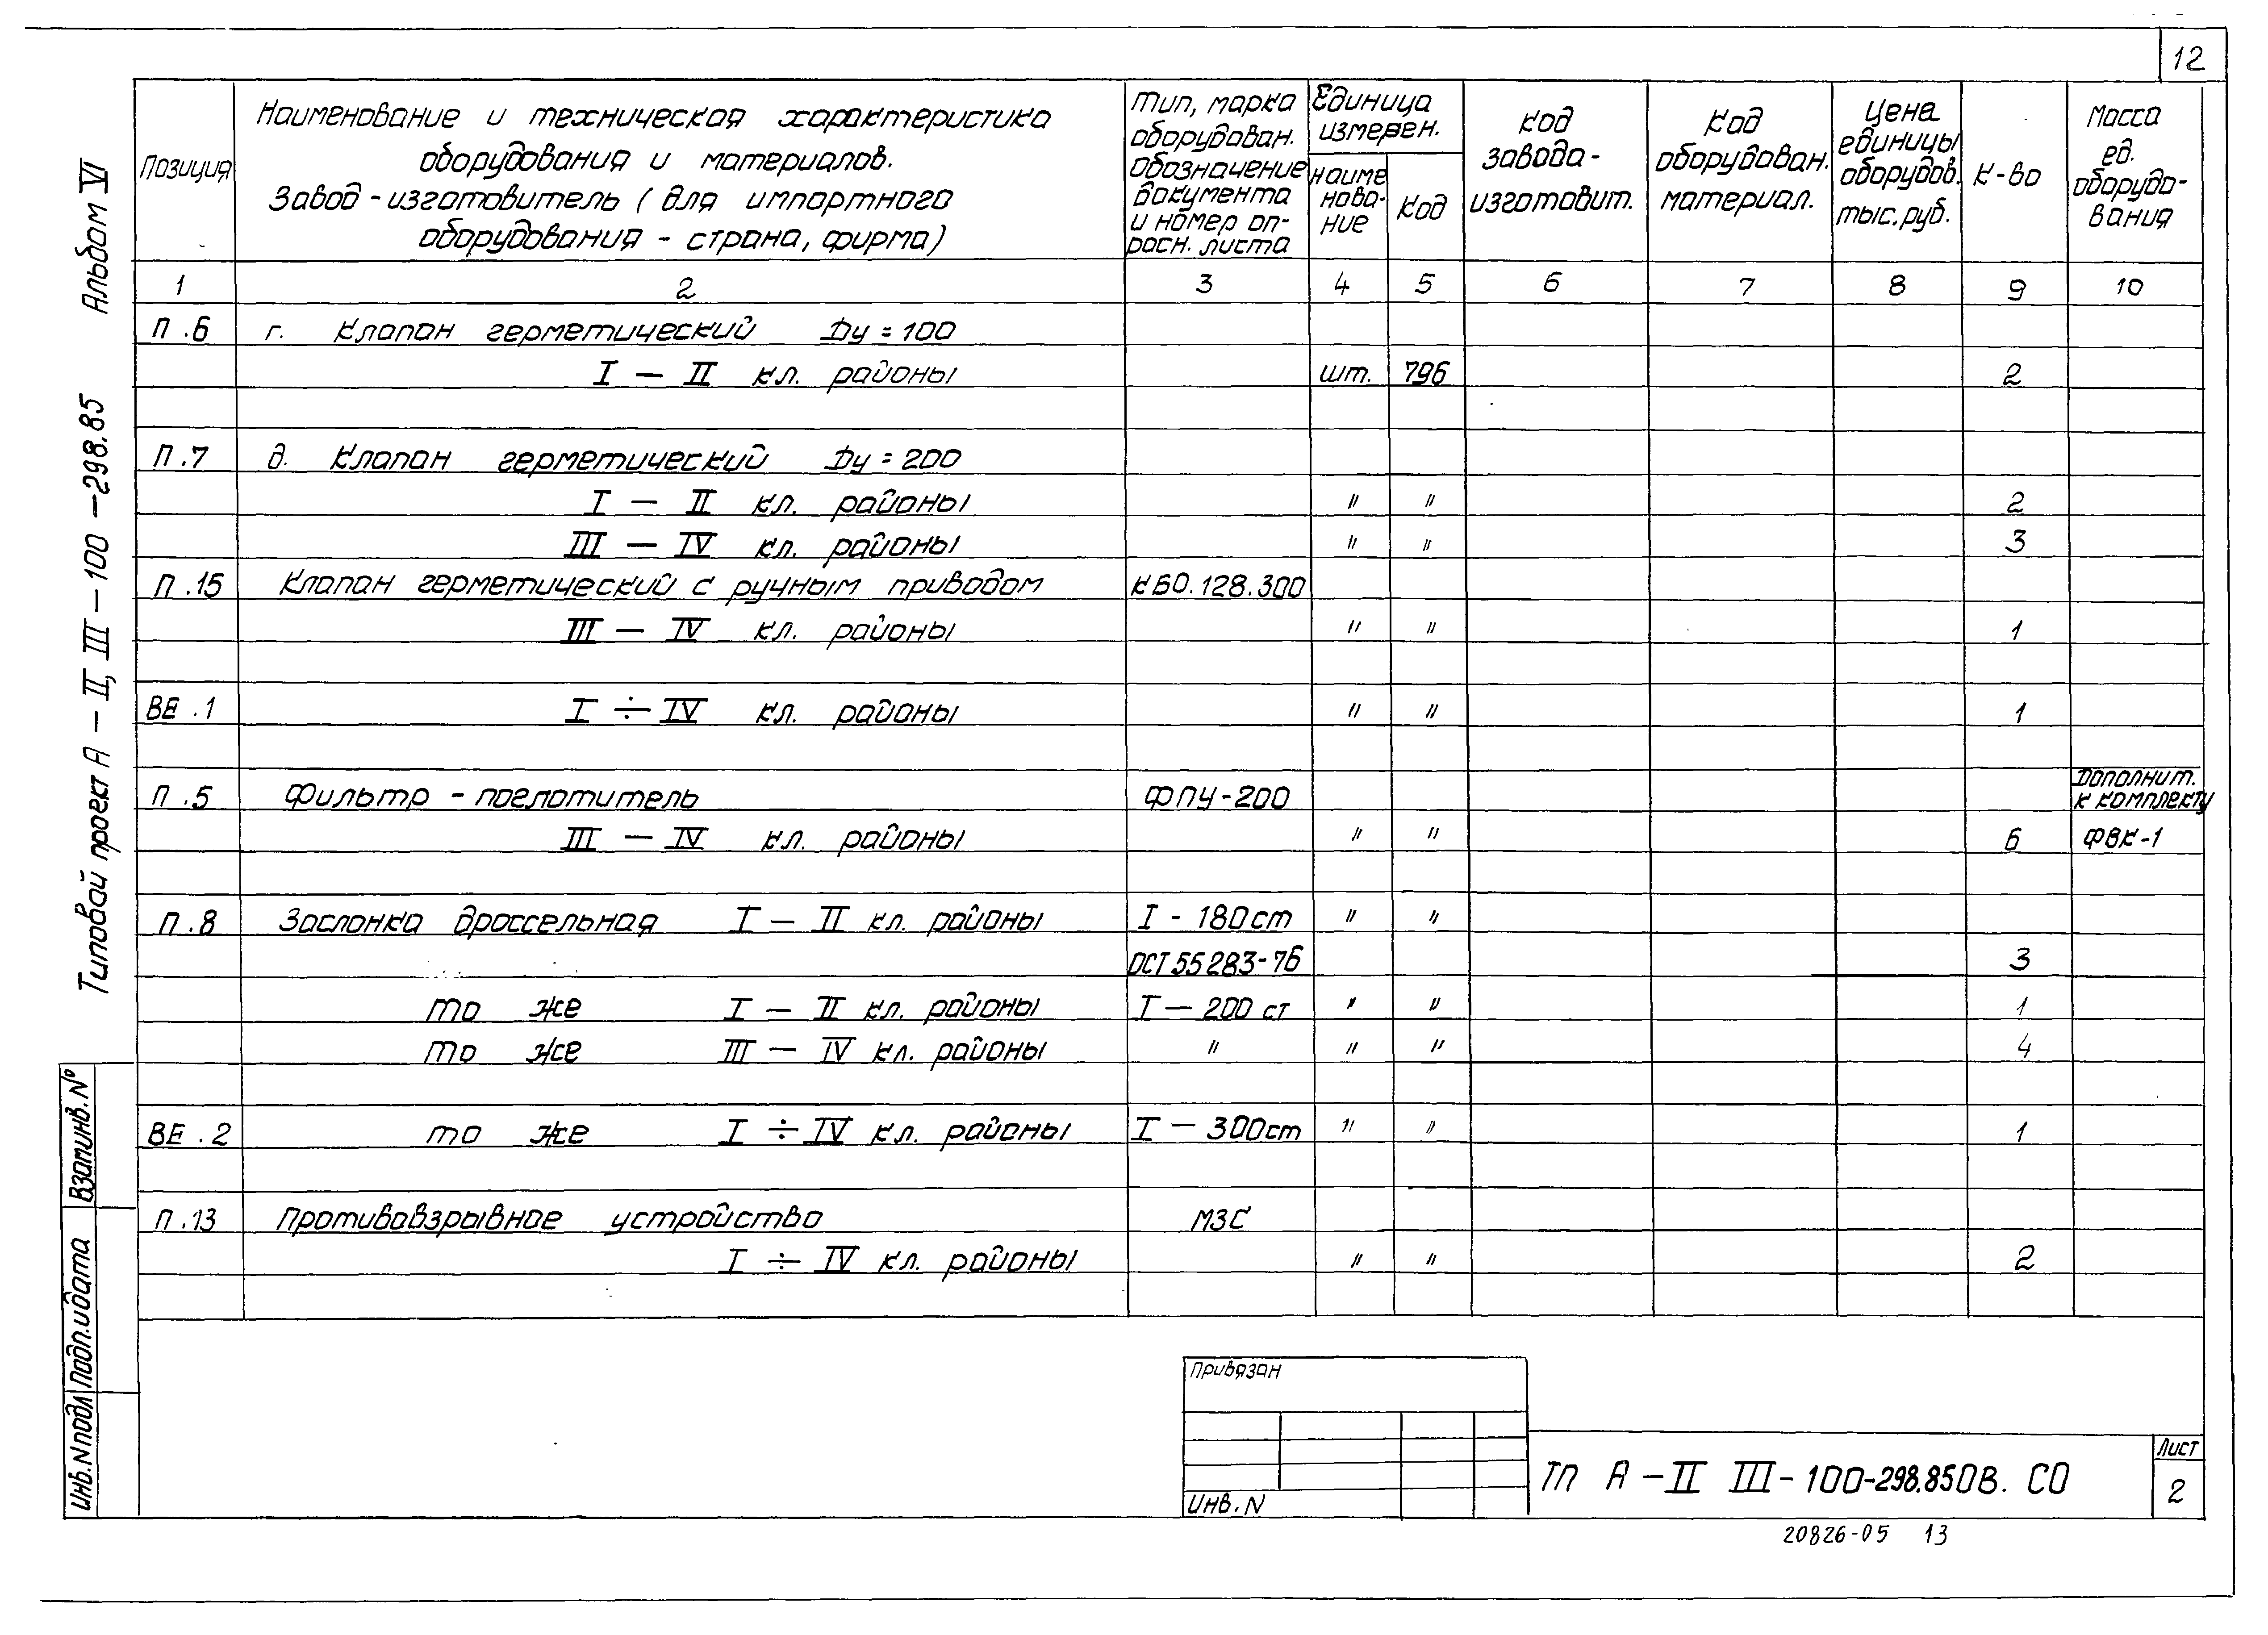 12
Позиция
Наименование и техническая характеристика
оборудования и материалов.
Завод-изготовитель (для импортного
оборудования - страна, фирма)
Тип, марка
оборудован.
обозначение
документа
и номер оп-
росн. листа
Единица
измерен.
наиме
нова-
ние
Код
Код
завода-
изготовит.
Код
оборудован.
материал.
Цена
единицы
оборудов.
тыс. руб.
К-во
Масса
ед.
оборудо-
вания
1 2 3 4 5 6 7 8 9 10
П.6 г. Клапан герметический Dу = 100
I — II кл. районы шт. 796 2
П.7 д. Клапан герметический Dу = 200
I — II кл. районы " " 2
III — IV кл. районы " " 3
П.15 Клапан герметический с ручным приводом КБО.128.300
III — IV кл. районы " " 1
ВЕ.1 I ÷ IV кл. районы " " 1
П.5 Фильтр-поглотитель ФПУ-200 Дополнит.
к комплекту
III — IV кл. районы " " 6 ФВК-1
П.8 Заслонка дроссельная I — II кл. районы I - 180 ст " "
ОСТ 55 283-76 3
то же I — II кл. районы I — 200 ст " " 1
то же III — IV кл. районы " " " 4
ВЕ.2 то же I ÷ IV кл. районы I — 300 ст " " 1
П.13 Противовзрывное устройство МЗС
I ÷ IV кл. районы " " 2
Альбом VI
Типовой проект А - II, III - 100 - 298.85
Взам инв. №
Подп. и дата
Инв. N подл
Привязан
Инв. N
ТП А - II III - 100-298.85 ОВ. СО
Лист
2
20826-05 13